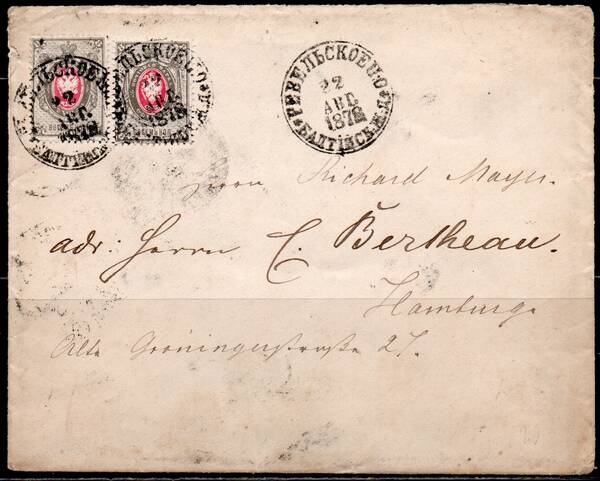 РЕВЕЛЬСКОЕ П.О.
22
АВГ.
1878
БАЛТІЙСК.Ж.Д.
Herrn Richard Mayer.
adr: Herrn C. Bertheau.
Hamburg.
Alte Groningerstraße 27.